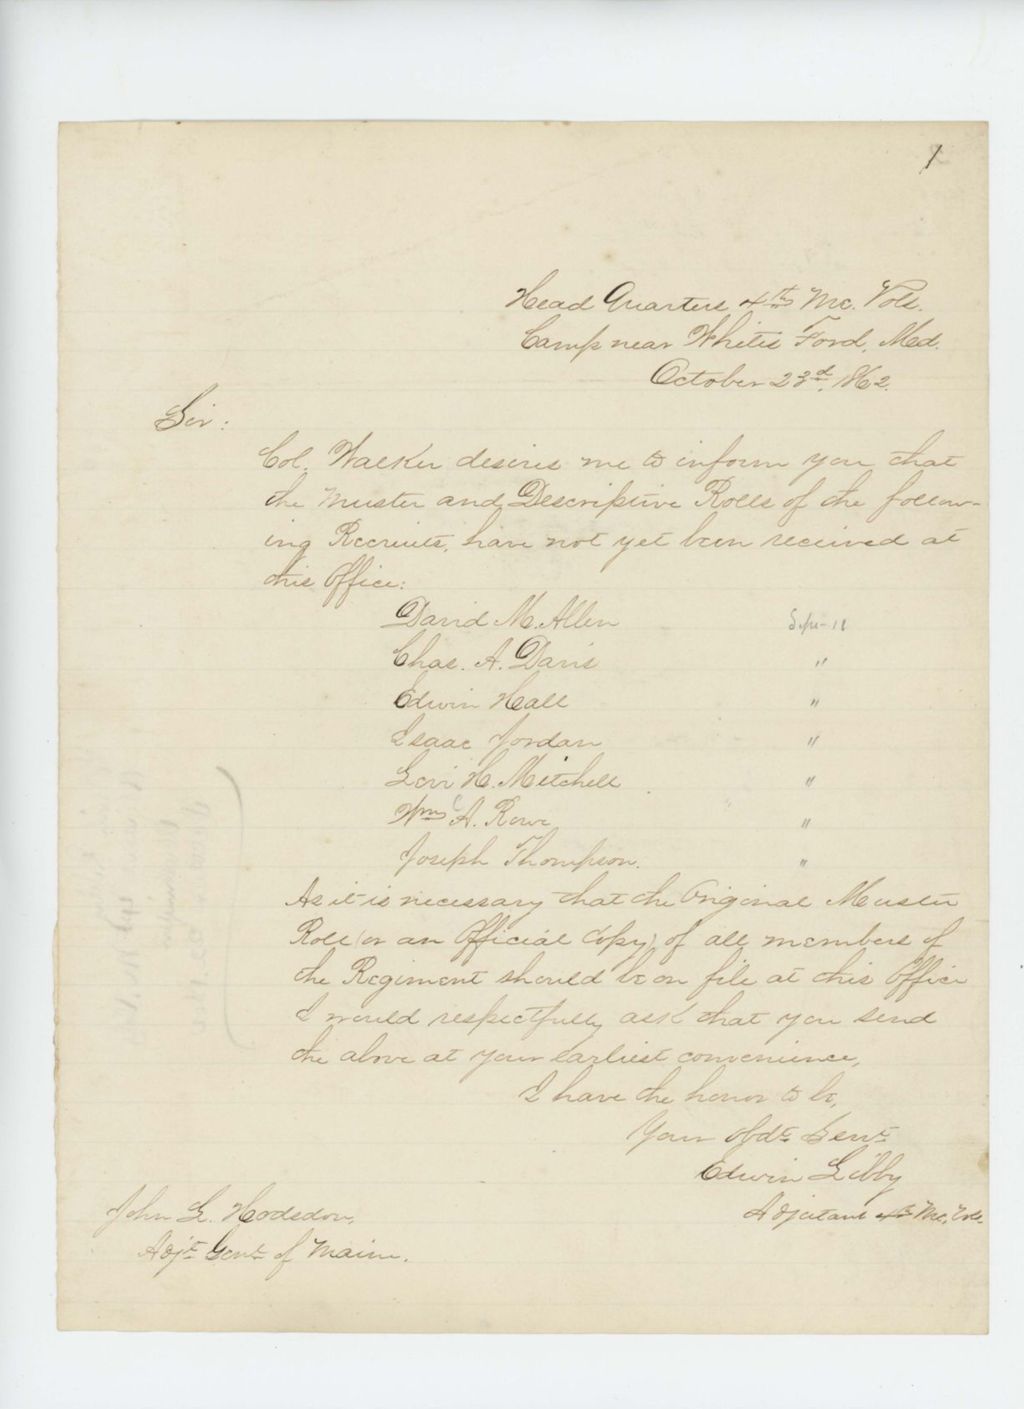 1
Head Quarters 4th Me. Vols.
Camp near Whites Ford, Md.
October 23d, 1862.
Sir:
Col. Walker desires me to inform you that
the Muster and Descriptive Rolls of the follow-
ing Recruits, have not yet been received at
this Office:
David M. Allen Sept-18
Chas. A. Davis "
Edwin Hall "
Isaac Jordan "
Levi H. Mitchell "
Wm A. Rowe "
Joseph Thompson. "
As it is necessary that the Original Muster
Roll (or an Official Copy) of all members of
the Regiment should be on file at this Office
I would respectfully ask that you send
the above at your earliest convenience,
I have the honor to be,
Your Obdt Servt
Edwin Libby
Adjutant 4th Me. Vols.
John L. Hodsdon,
Adjt Genl of Maine.